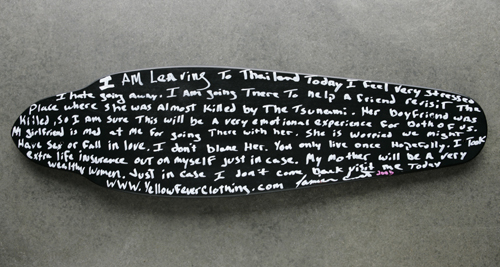 I AM Leaving To Thailand Today I feel very stressed
I hate going away. I am going There To help A friend revisit The
Place where she was Almost Killed by The Tsunami. Her boyfriend was
Killed, so I am sure This will be a very emotional experience for both of us.
My girlfriend is mad at Me for going There with her. She is worried we might
Have Sex or fall in love. I don't blame Her. You only live once Hopefully. I Took
extra life insurance out on myself just in case. My mother will be A very
wealthy women. Just in case I don't come Back Visit me Today
WWW.YellowFeverClothing.com 2005